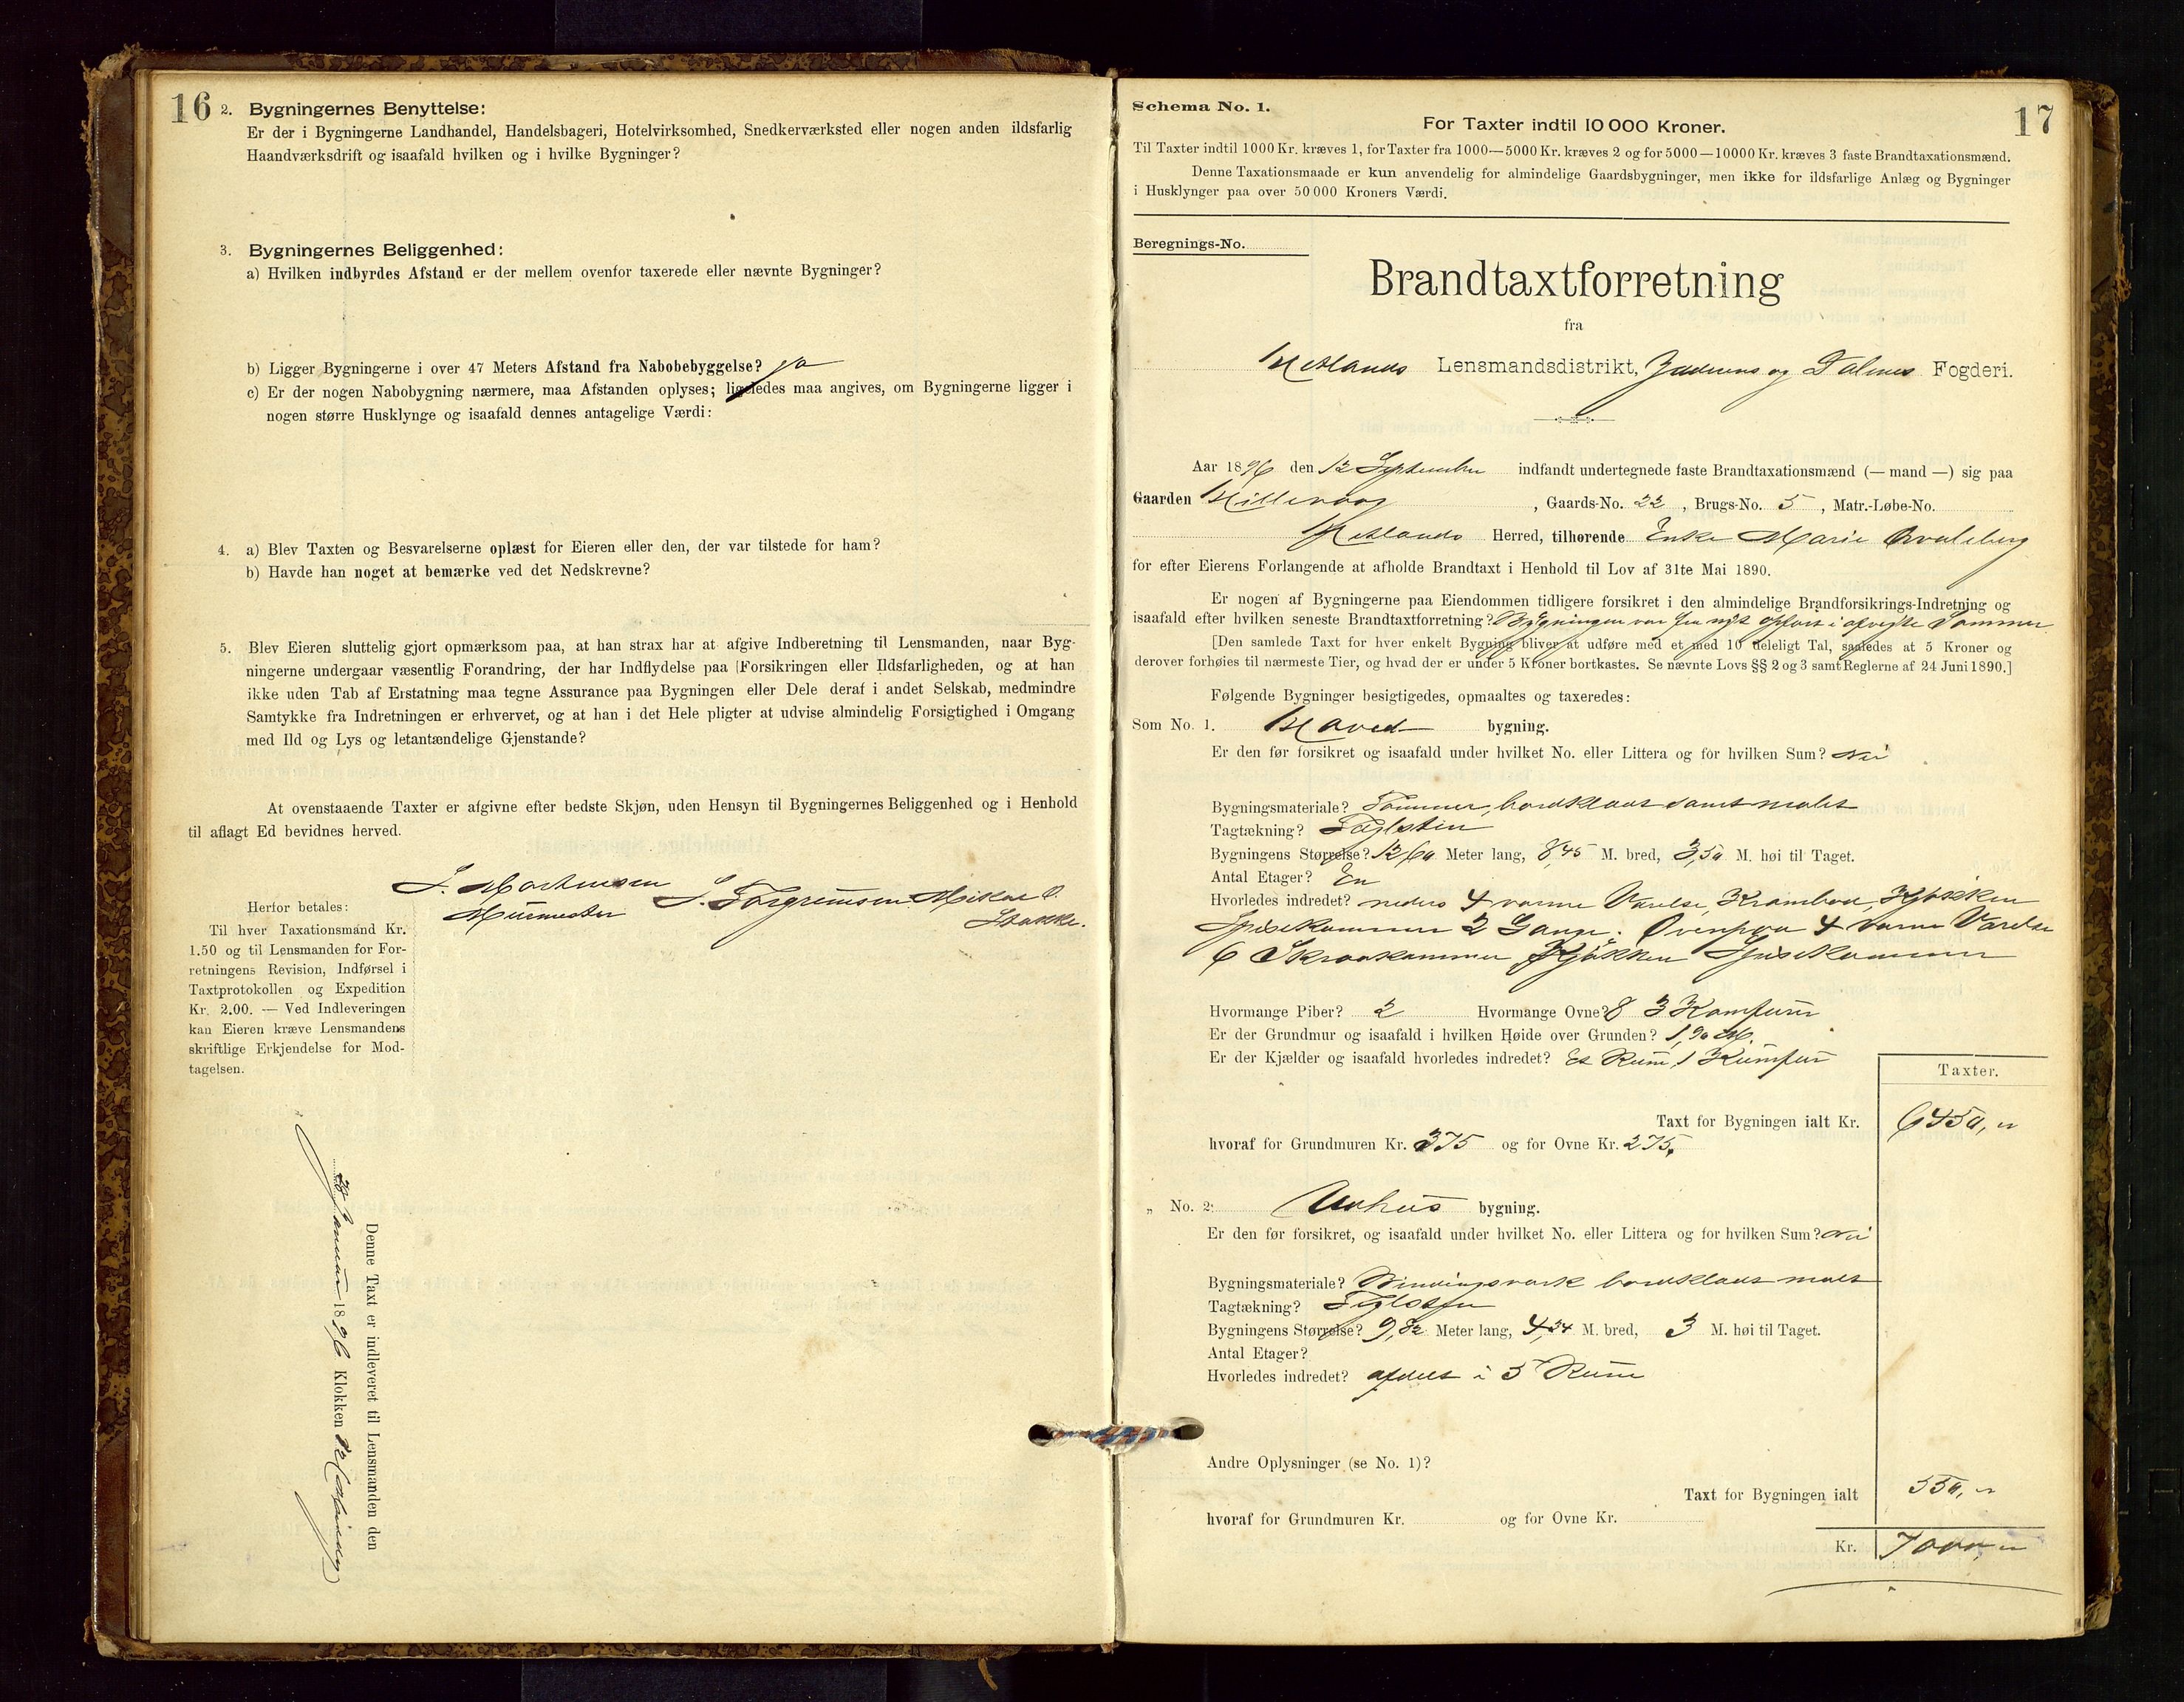 16
2. Bygningernes Benyttelse:
Er der i Bygningerne Landhandel, Handelsbageri, Hotelvirksomhed, Snedkerværksted eller nogen anden ildsfarlig
Haandværksdrift og isaafald hvilken og i hvilke Bygninger?
3. Bygningernes Beliggenhed:
a) Hvilken indbyrdes Afstand er der mellem ovenfor taxerede eller nævnte Bygninger?
b) Ligger Bygningerne i over 47 Meters Afstand fra Nabobebyggelse? ja
c) Er der nogen Nabobygning nærmere, maa Afstanden oplyses; ligeledes maa angives, om Bygningerne ligger i
nogen større Husklynge og isaafald dennes antagelige Værdi:
4. a) Blev Taxten og Besvarelserne oplæst for Eieren eller den, der var tilstede for ham?
b) Havde han noget at bemærke ved det Nedskrevne?
5. Blev Eieren sluttelig gjort opmærksom paa, at han strax har at afgive Indberetning til Lensmanden, naar Byg-
ningerne undergaar væsentlig Forandring, der har Indflydelse paa Forsikringen eller Ildsfarligheden, og at han
ikke uden Tab af Erstatning maa tegne Assurance paa Bygningen eller Dele deraf i andet Selskab, medmindre
Samtykke fra Indretningen er erhvervet, og at han i det Hele pligter at udvise almindelig Forsigtighed i Omgang
med Ild og Lys og letantændelige Gjenstande?
At ovenstaaende Taxter er afgivne efter bedste Skjøn, uden Hensyn til Bygningernes Beliggenhed og i Henhold
til aflagt Ed bevidnes herved.
Murmester
Herfor betales:
Til hver Taxationsmand Kr.
1.50 og til Lensmanden for For-
retningens Revision, Indførsel i
Taxtprotokollen og Expedition
Kr. 2.00. — Ved Indleveringen
kan Eieren kræve Lensmandens
skriftlige Erkjendelse for Mod-
tagelsen.
Denne Taxt er indleveret til Lensmanden den
Januar 1896 Klokken 12 (Middag)
17
Schema No. 1.
For Taxter indtil 10 000 Kroner.
Til Taxter indtil 1000 Kr. kræves 1, for Taxter fra 1000—5000 Kr. kræves 2 og for 5000—10000 Kr. kræves 3 faste Brandtaxationsmænd.
Denne Taxationsmaade er kun anvendelig for almindelige Gaardsbygninger, men ikke for ildsfarlige Anlæg og Bygninger
i Husklynger paa over 50 000 Kroners Værdi.
Beregnings-No.
Brandtaxtforretning
fra
Hetlands Lensmandsdistrikt, Jæderens og Dalernes Fogderi.
Aar 1896 den 12 September indfandt undertegnede faste Brandtaxationsmænd (— mand —) sig paa
Gaarden Hillevaag, Gaards-No. 22, Brugs-No. 5, Matr.-Løbe-No.
Hetlands Herred, tilhørende Enke Marie
for efter Eierens Forlangende at afholde Brandtaxt i Henhold til Lov af 31te Mai 1890.
Er nogen af Bygningerne paa Eiendommen tidligere forsikret i den almindelige Brandforsikrings-Indretning og
isaafald efter hvilken seneste Brandtaxtforretning? Bygningen var fra nyt opført i afvigte Sommer
[Den samlede Taxt for hver enkelt Bygning bliver at udføre med et med 10 deleligt Tal, saaledes at 5 Kroner og
derover forhøies til nærmeste Tier, og hvad der er under 5 Kroner bortkastes. Se nævnte Lovs §§ 2 og 3 samt Reglerne af 24 Juni 1890.]
Følgende Bygninger besigtigedes, opmaaltes og taxeredes:
Som No. 1. Hoved bygning.
Er den før forsikret og isaafald under hvilket No. eller Littera og for hvilken Sum? Nei
Bygningsmateriale? Tømmer, bordklædt samt malet
Tagtækning? Teglsten
Bygningens Størrelse? 12,60 Meter lang, 8,45 M. bred, 3,50 M. høi til Taget.
Antal Etager? En
Hvorledes indredet? neders 4 varme Værelse, Krambod, Kjøkken
Spisekammer 2 Gange. Ovenpaa 4 varme Værelse
6 Skraakammer, Kjøkken Spisekammer
Hvormange Piber? 2 Hvormange Ovne? 8 3 Komfurer
Er der Grundmur og isaafald i hvilken Høide over Grunden? 1,90 M.
Er der Kjælder og isaafald hvorledes indredet? Et Rum, 1 Kumfur
Taxter.
Taxt for Bygningen ialt Kr. 6450,
hvoraf for Grundmuren Kr. 375 og for Ovne Kr. 275.
„ No. 2: Udhus bygning.
Er den før forsikret, og isaafald under hvilket No. eller Littera og for hvilken Sum? Nei
Bygningsmateriale? Bindingsværk bordklædt malet
Tagtækning? Teglsten
Bygningens Størrelse? 9,82 Meter lang, 4,34 M. bred, 3 M. høi til Taget.
Antal Etager?
Hvorledes indredet? afdelt i 5 Rum
Andre Oplysninger (se No. 1)?
Taxt for Bygningen ialt 550,
hvoraf for Grundmuren Kr. og for Ovne Kr.
Kr. 7000,